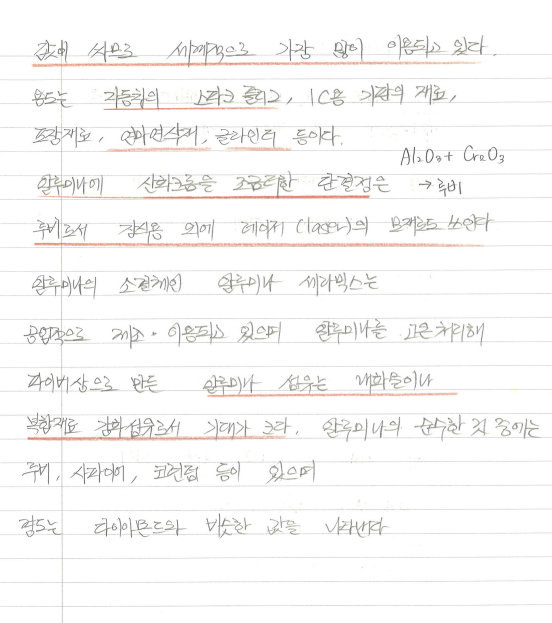 값이 싸므로 세계적으로 가장 많이 이용되고 있다.
용도는 자동차의 스파크 플러그, IC용 기판의 재료,
포장재료, 연마연삭재, 글라인더 등이다.
Al2O3 + Cr2O3
알루미나에 산화크롬을 조금 더한 단결정은 → 루비
루비로서 장식용 외에 레이저(laser)의 모재로도 쓰인다
알루미나의 소결체인 알루미나 세라믹스는
공업적으로 제조·이용되고 있으며 알루미나를 고온처리해
파이버상으로 만든 알루미나 섬유는 내화물이나
복합재료 강화섬유로서 기대가 크다. 알루미나의 순수한 것 중에는
루비, 사파이어, 코런덤 등이 있으며
경도는 다이아몬드와 비슷한 값을 나타낸다